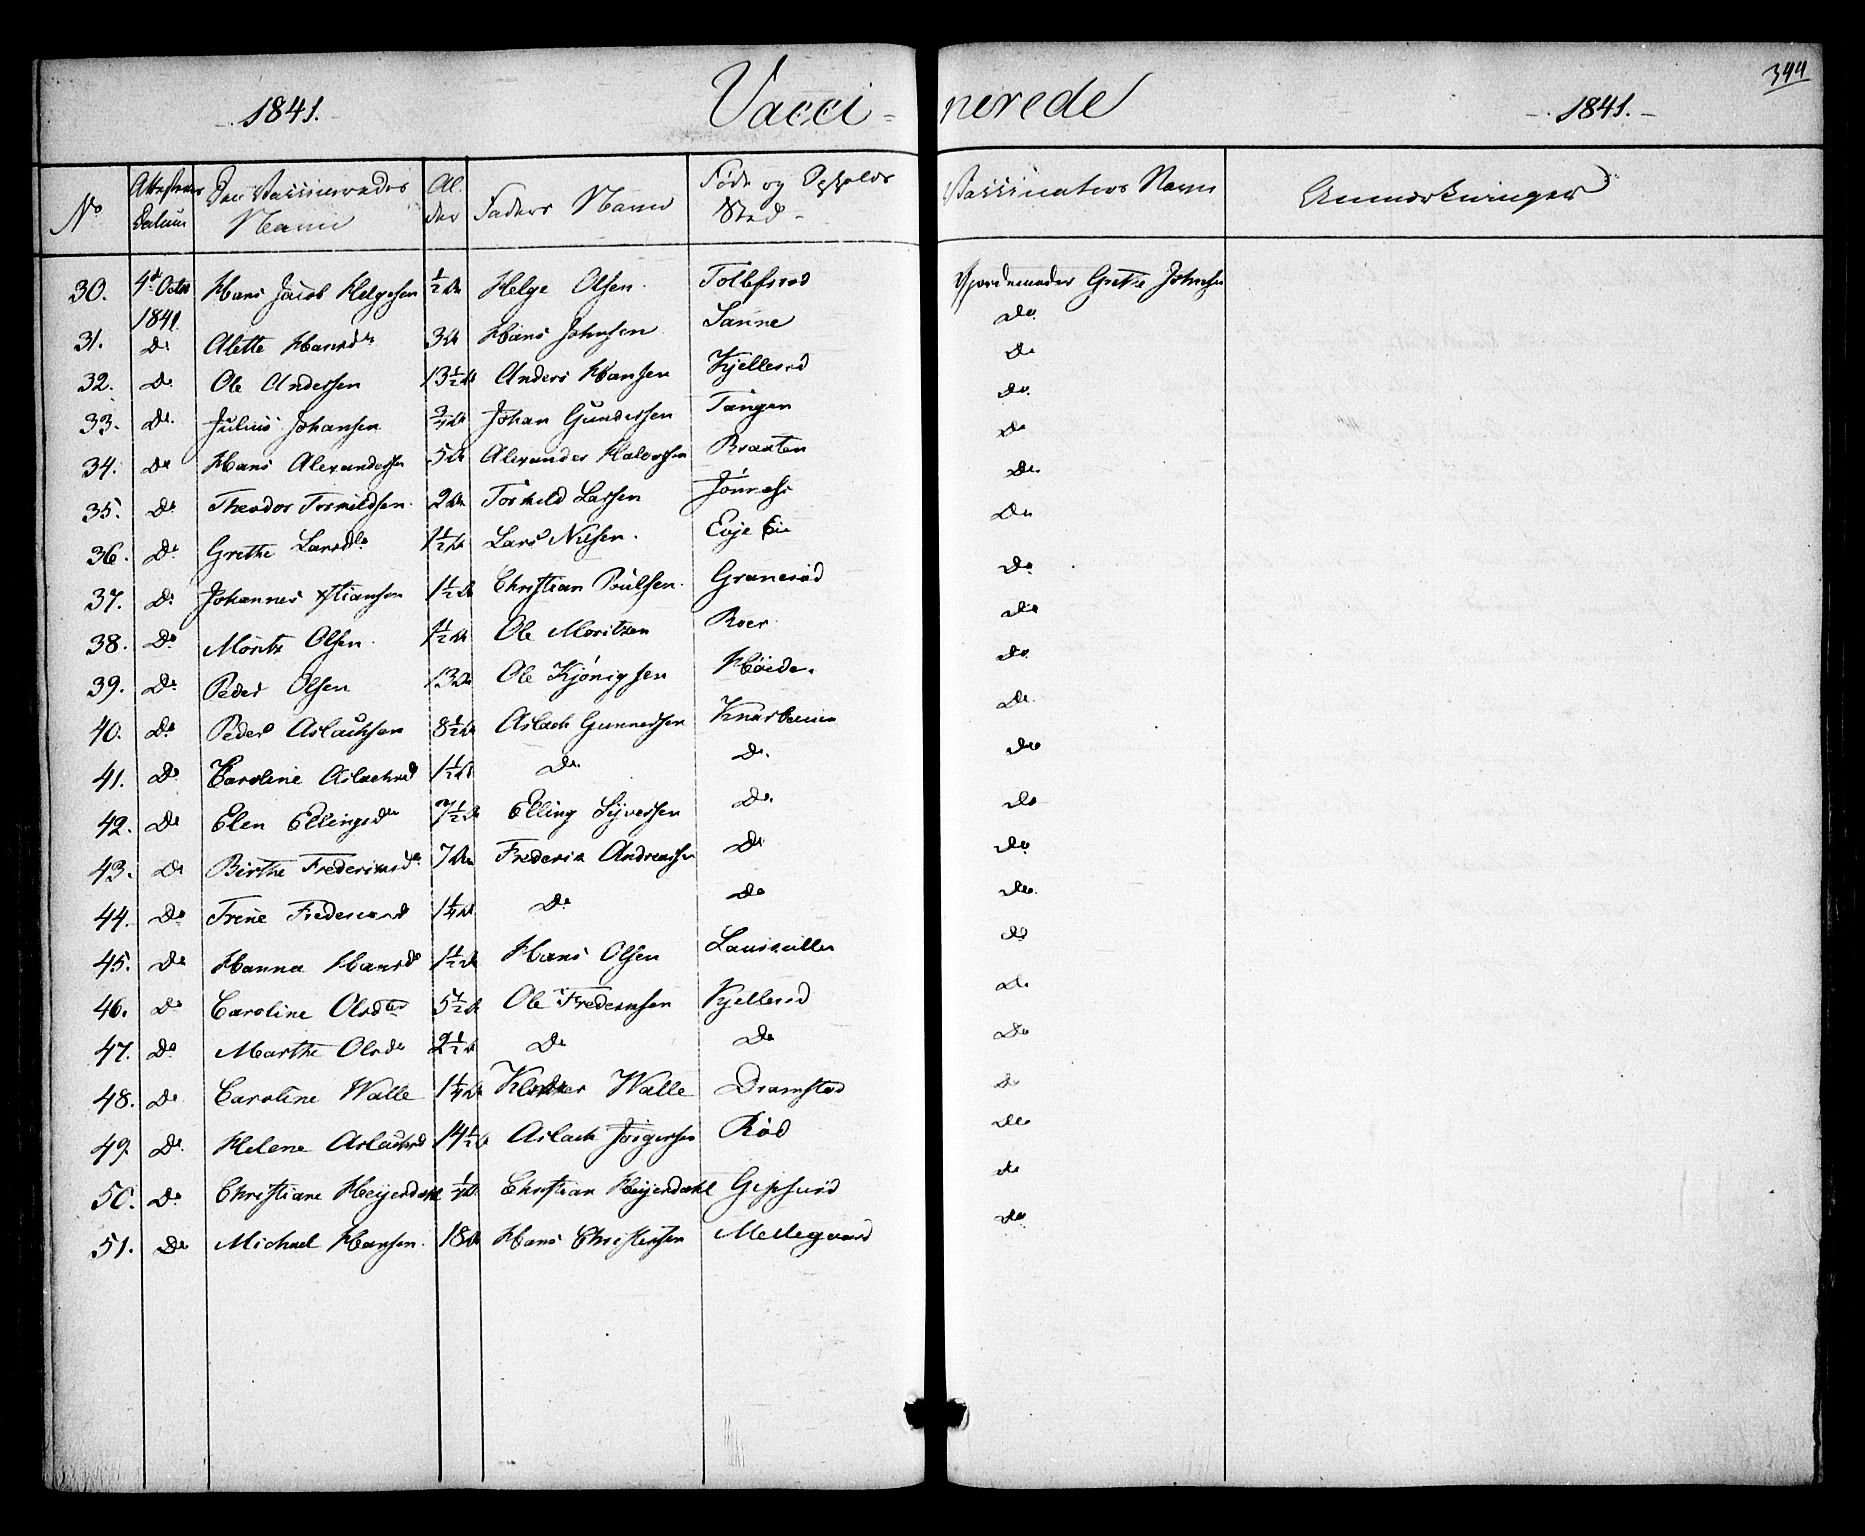 344
1841. Vacci-nerede 1841.
No Attestens Datum Den Vaccineredes Navn Alder Faders Navn Føde og Opholds Sted Vaccinateurs Navn Anmærkninger
30. 4d Octbr 1841 Hans Jacob Helgesen ½ Helge Olsen Tollefsrød Gjordemoder Grethe Johnsen
31. Do Alette Hansdr 3 Hans Johnsen Sanne Do
32. Do Ole Andersen 13½ Anders Hansen Kjellerød Do
33. Do Julius Johansen ¾ Johan Gundersen Tangen Do
34. Do Hans Alexandersen 5 Alexander Halvorsen Braaten Do
35. Do Theodor Tormildsen 2 Tormild Larsen Do
36. Do Grethe Larsdr 1½ Lars Nilsen Evje Eie Do
37. Do Johannes Xstiansen 1½ Christian Poulsen Granerød Do
38. Do Moritz Olsen 1½ Ole Moritzen Roer Do
39. Do Peder Olsen 13 Ole Kjønigsen Høide Do
40. Do Peder Aslachsen 8½ Aslach Gunnersen Do
41. Do Caroline Aslachsd 1½ Do Do Do
42. Do Elen Ellingsdr 7½ Elling Syversen Do Do
43. Do Birthe Frederiksdr 7 Frederik Andreasen Do Do
44. Do Trine Frederiksd 1¼ Do Do Do
45. Do Hanna Hansdr 1½ Hans Olsen Do
46. Do Caroline Olsdter 5½ Ole Frederiksen Kjellerød Do
47. Do Marthe Olsdr 2½ Do Do Do
48. Do Caroline Walle 1¼ Walle Dramstad Do
49. Do Helene Aslachsd 14½ Aslach Jørgensen Rød Do
50. Do Christiane Heyerdahl ¼ Christian Heyerdahl Gipsund Do
51. Do Michael Hansen 18 Hans Christensen Mellegaard Do